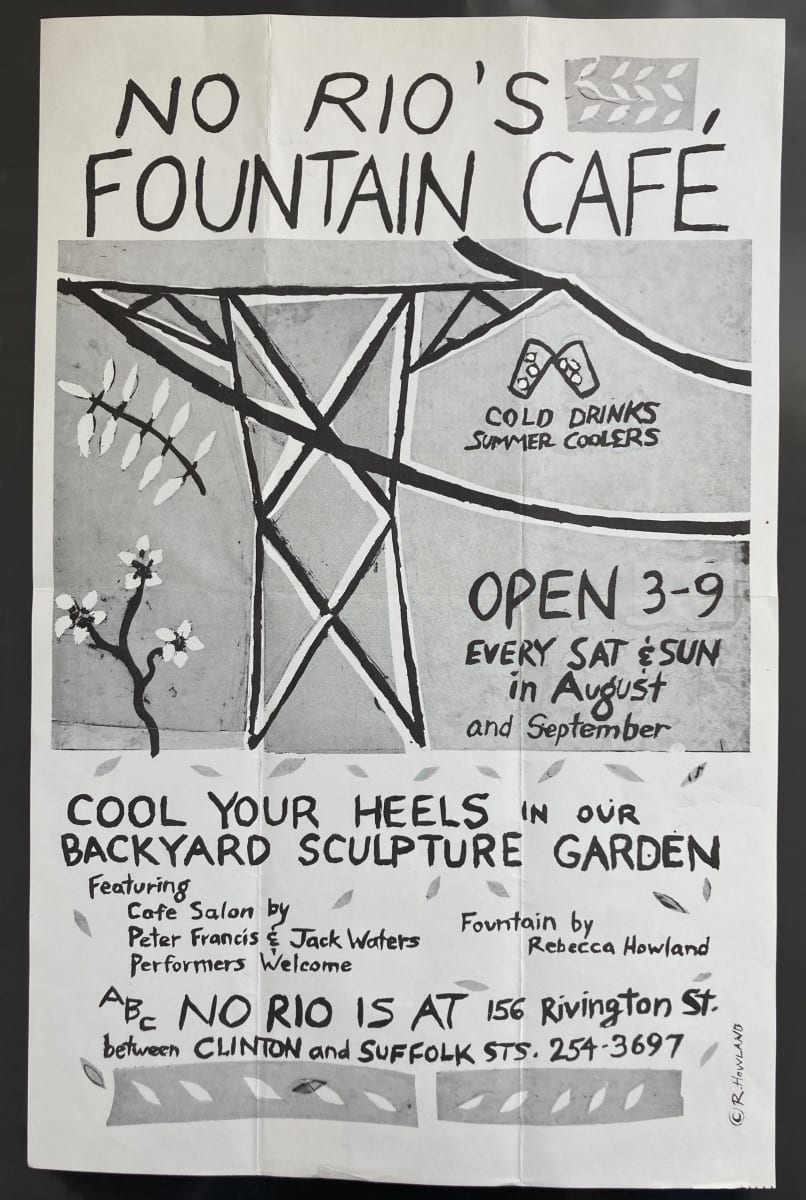 NO RIO'S
FOUNTAIN CAFÉ
COLD DRINKS
SUMMER COOLERS
OPEN 3-9
EVERY SAT & SUN
in August
and September
COOL YOUR HEELS IN OUR
BACKYARD SCULPTURE GARDEN
Featuring
Cafe Salon by
Peter Francis & Jack Waters
Performers Welcome
Fountain by
Rebecca Howland
ABC NO RIO IS AT 156 Rivington St.
between CLINTON and SUFFOLK STS. 254-3697
© R. HOWLAND